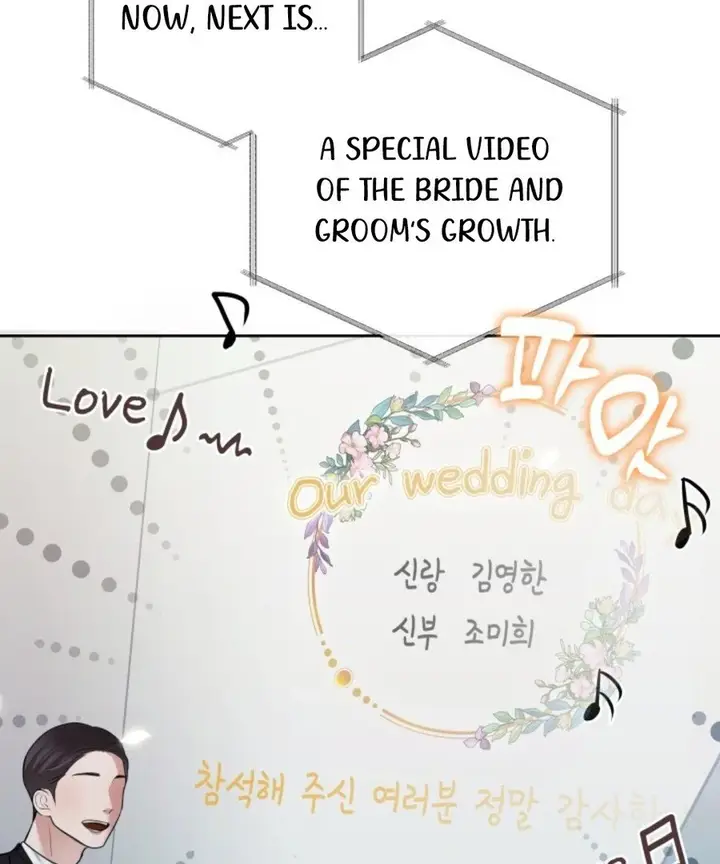 NOW, NEXT IS...
A SPECIAL VIDEO
OF THE BRIDE AND
GROOM'S GROWTH.
파앗
Love
Our wedding da
신랑 김영한
신부 조미희
참석해 주신 여러분 정말 감사하